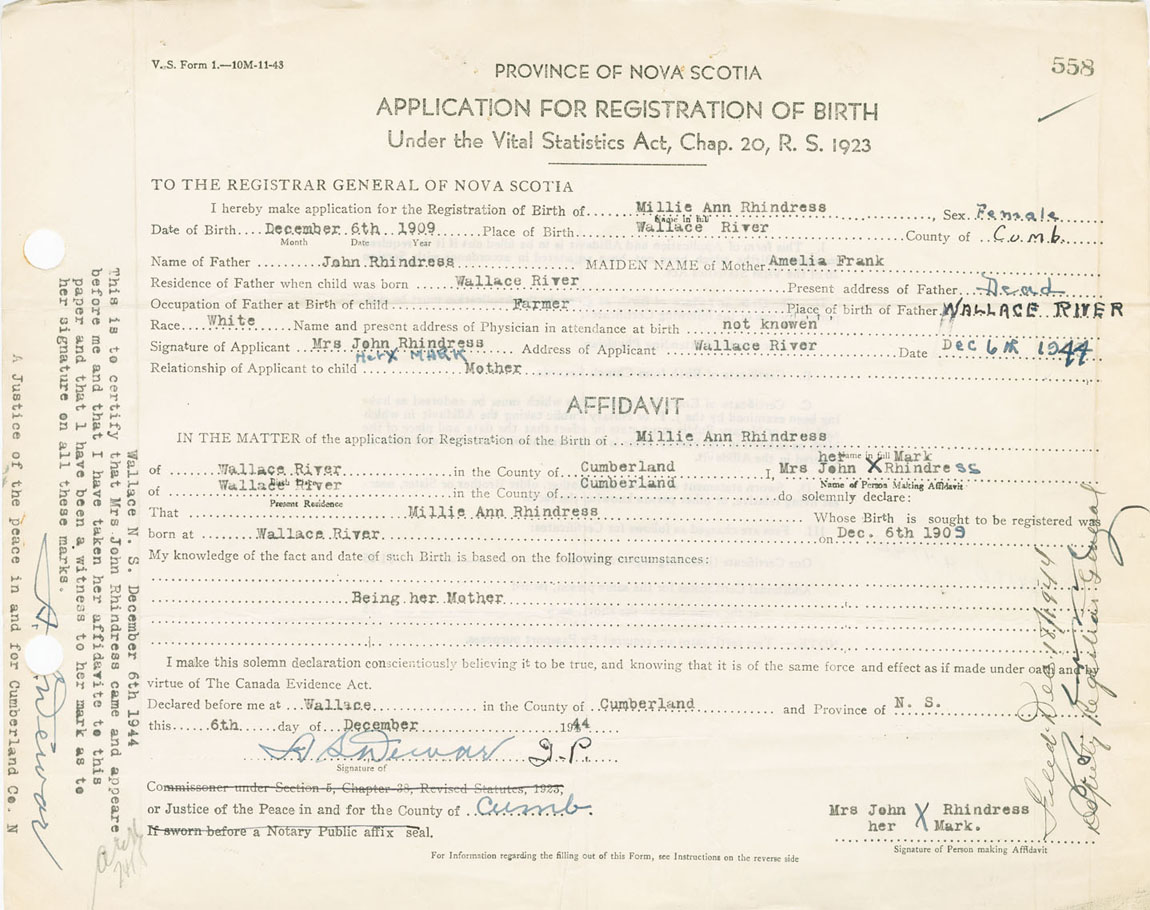 V. S. Form 1.—10M-11-43
558
PROVINCE OF NOVA SCOTIA
APPLICATION FOR REGISTRATION OF BIRTH
Under the Vital Statistics Act, Chap. 20, R. S. 1923
TO THE REGISTRAR GENERAL OF NOVA SCOTIA
I hereby make application for the Registration of Birth of Millie Ann Rhindress, Sex Female
Name in full
Date of Birth December 6th 1909 Place of Birth Wallace River County of Cumb.
Month Date Year
Name of Father John Rhindress MAIDEN NAME of Mother Amelia Frank
Residence of Father when child was born Wallace River Present address of Father Dead
Occupation of Father at Birth of child Farmer Place of birth of Father WALLACE RIVER
Race White Name and present address of Physician in attendance at birth not knowen
Signature of Applicant Mrs John Rhindress Address of Applicant Wallace River Date Dec 6th 1944
Her X MARK
Relationship of Applicant to child Mother
AFFIDAVIT
IN THE MATTER of the application for Registration of the Birth of Millie Ann Rhindress
Name in full
her Mark
of Wallace River in the County of Cumberland I, Mrs John X Rhindress
Birth Place
Name of Person Making Affidavit
of Wallace River in the County of Cumberland do solemnly declare:
Present Residence
That Millie Ann Rhindress Whose Birth is sought to be registered was
born at Wallace River on Dec. 6th 1909
My knowledge of the fact and date of such Birth is based on the following circumstances:
Being her Mother
I make this solemn declaration conscientiously believing it to be true, and knowing that it is of the same force and effect as if made under oath and by
virtue of The Canada Evidence Act.
Declared before me at Wallace in the County of Cumberland and Province of N. S.
this 6th day of December 1944
A S Dewar J.P.
Signature of
Commissioner under Section 5, Chapter 38, Revised Statutes, 1923,
or Justice of the Peace in and for the County of Cumb.
If sworn before a Notary Public affix seal.
Mrs John X Rhindress
her Mark.
Signature of Person making Affidavit
For Information regarding the filling out of this Form, see Instructions on the reverse side
Wallace N. S. December 6th 1944
This is to certify that Mrs John Rhindress came and appeare
before me and that I have taken her affidavite to this
paper and that I have been a witness to her mark as to
her signature on all these marks.
A. Dewar
A Justice of the peace in and for Cumberland Co. N
Filed Dec 18/1944
Deputy Registrar General